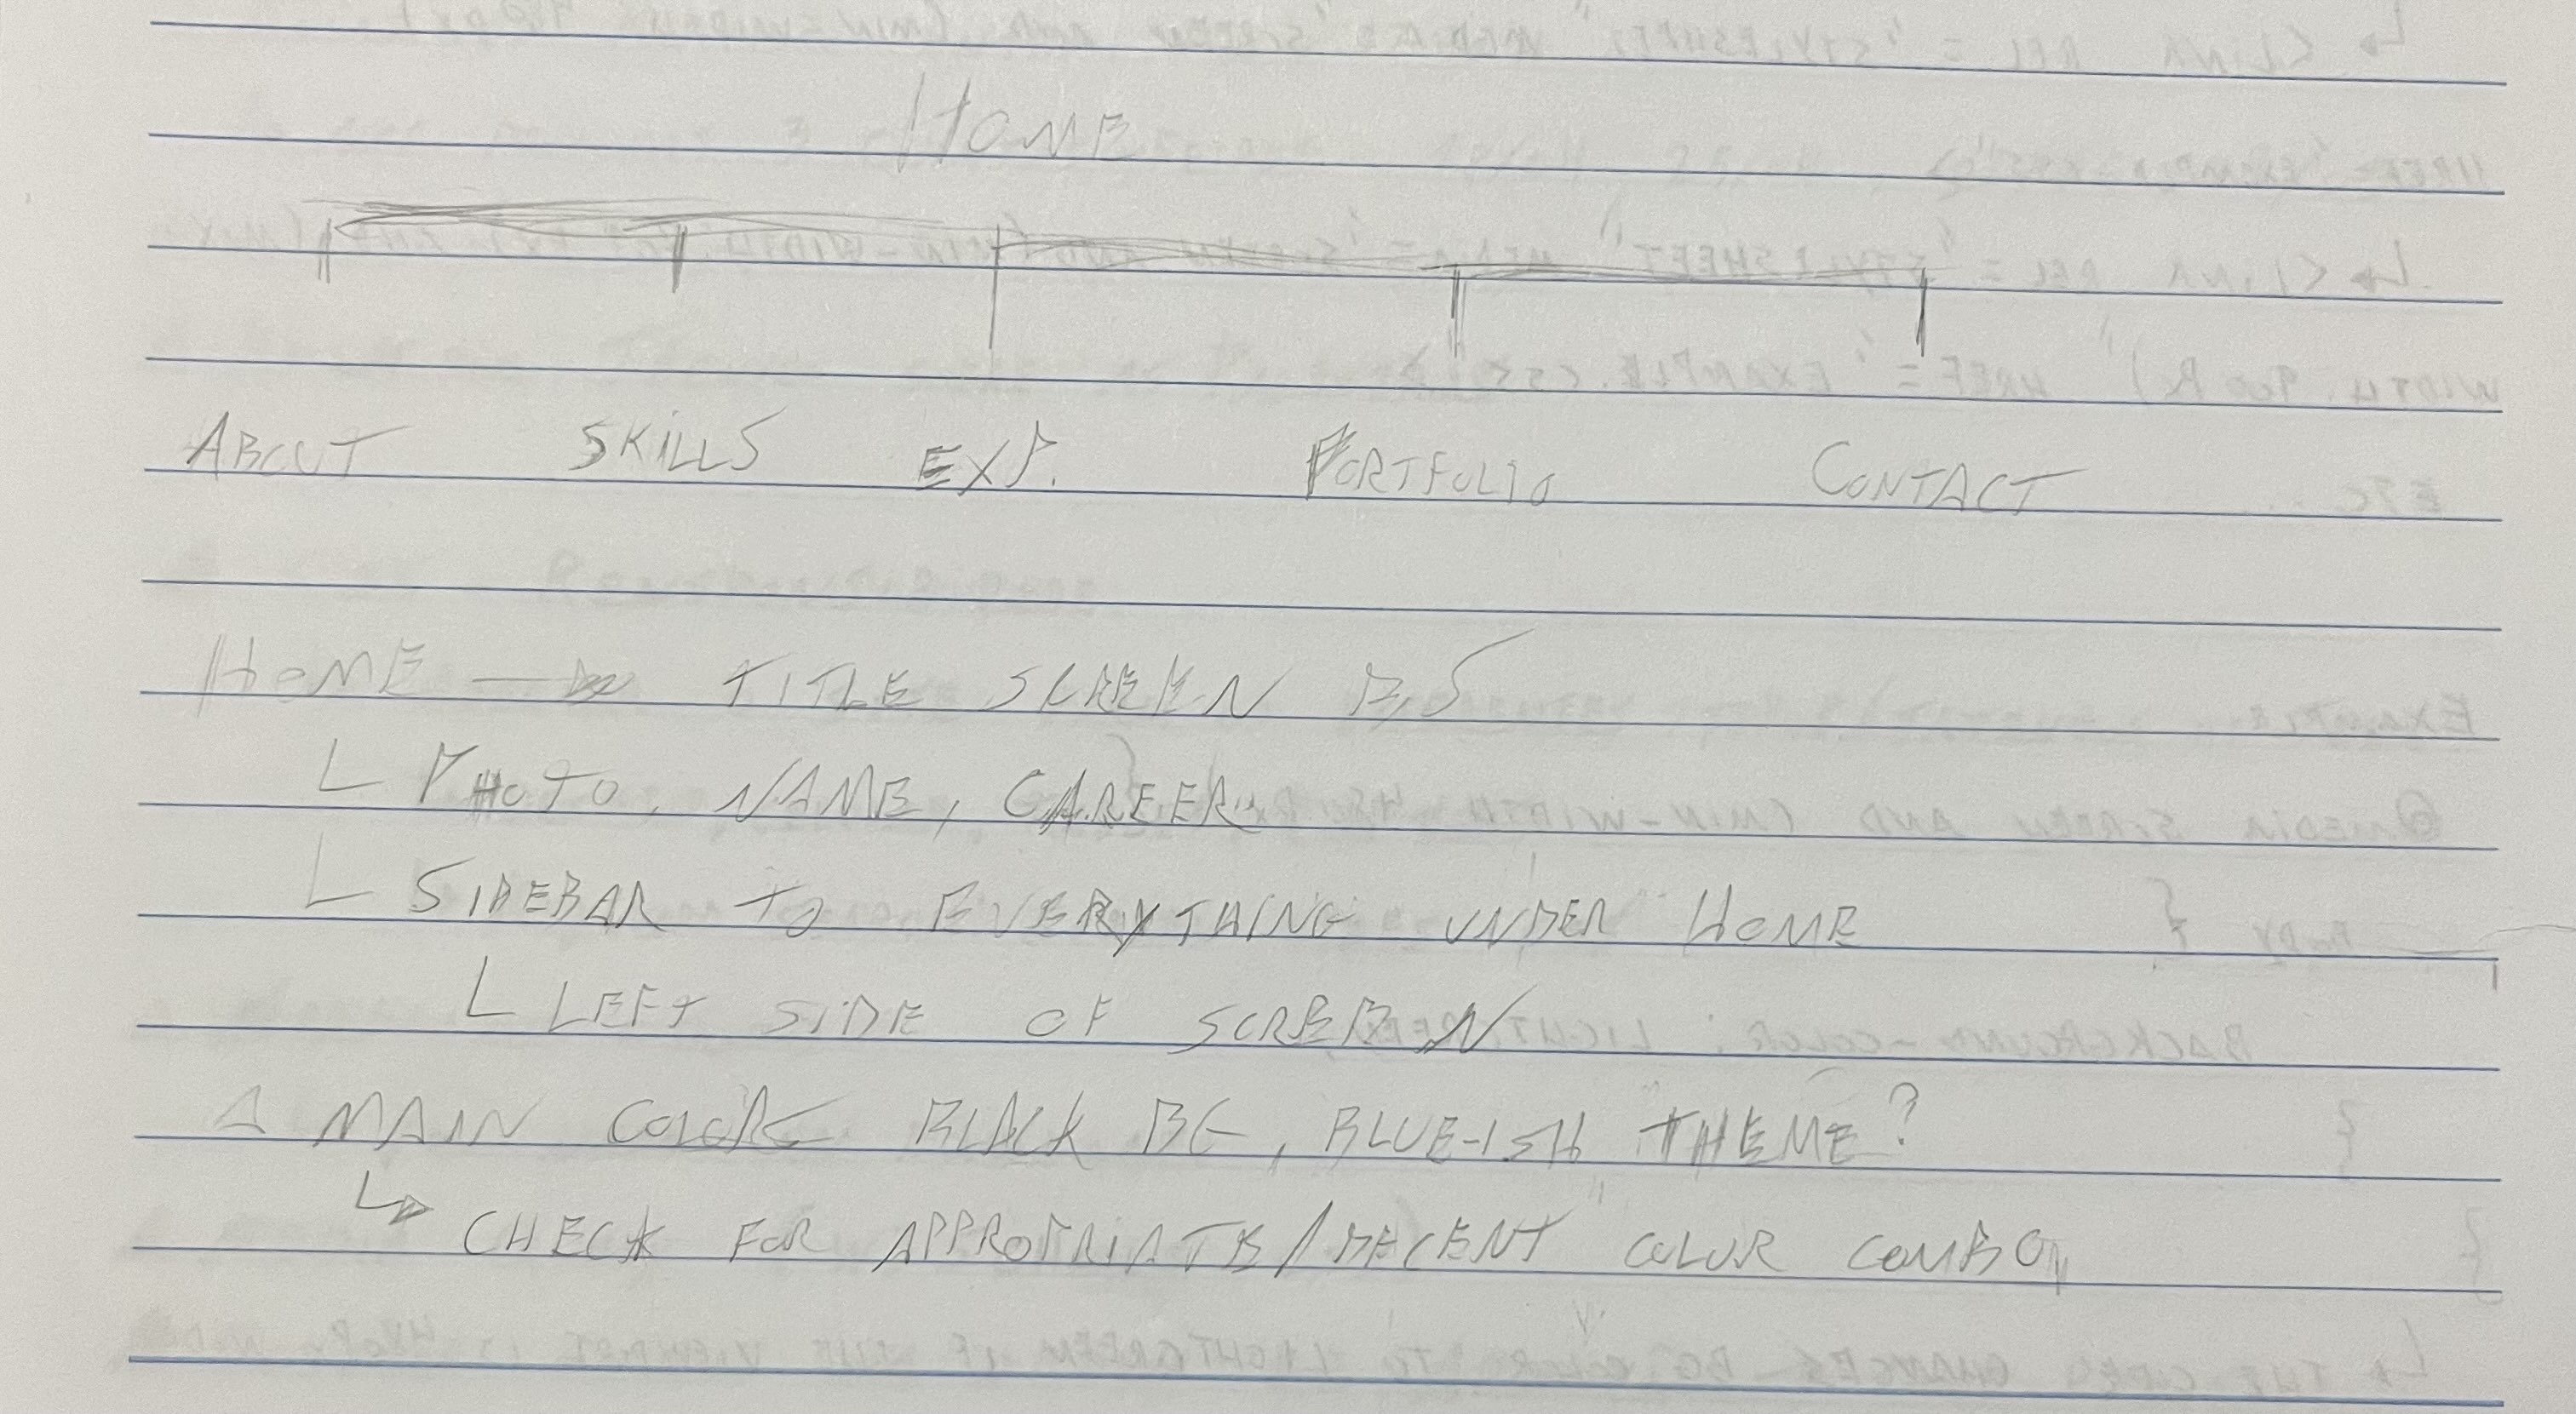 HOME
ABOUT SKILLS EXP. PORTFOLIO CONTACT
HOME → TITLE SCREEN
└ PHOTO, NAME, CAREER
└ SIDEBAR TO EVERYTHING UNDER HOME
└ LEFT SIDE OF SCREEN
△ MAIN COLORS BLACK BG, BLUE-ISH THEME?
↳ CHECK FOR APPROPRIATE/DECENT COLOR COMBO